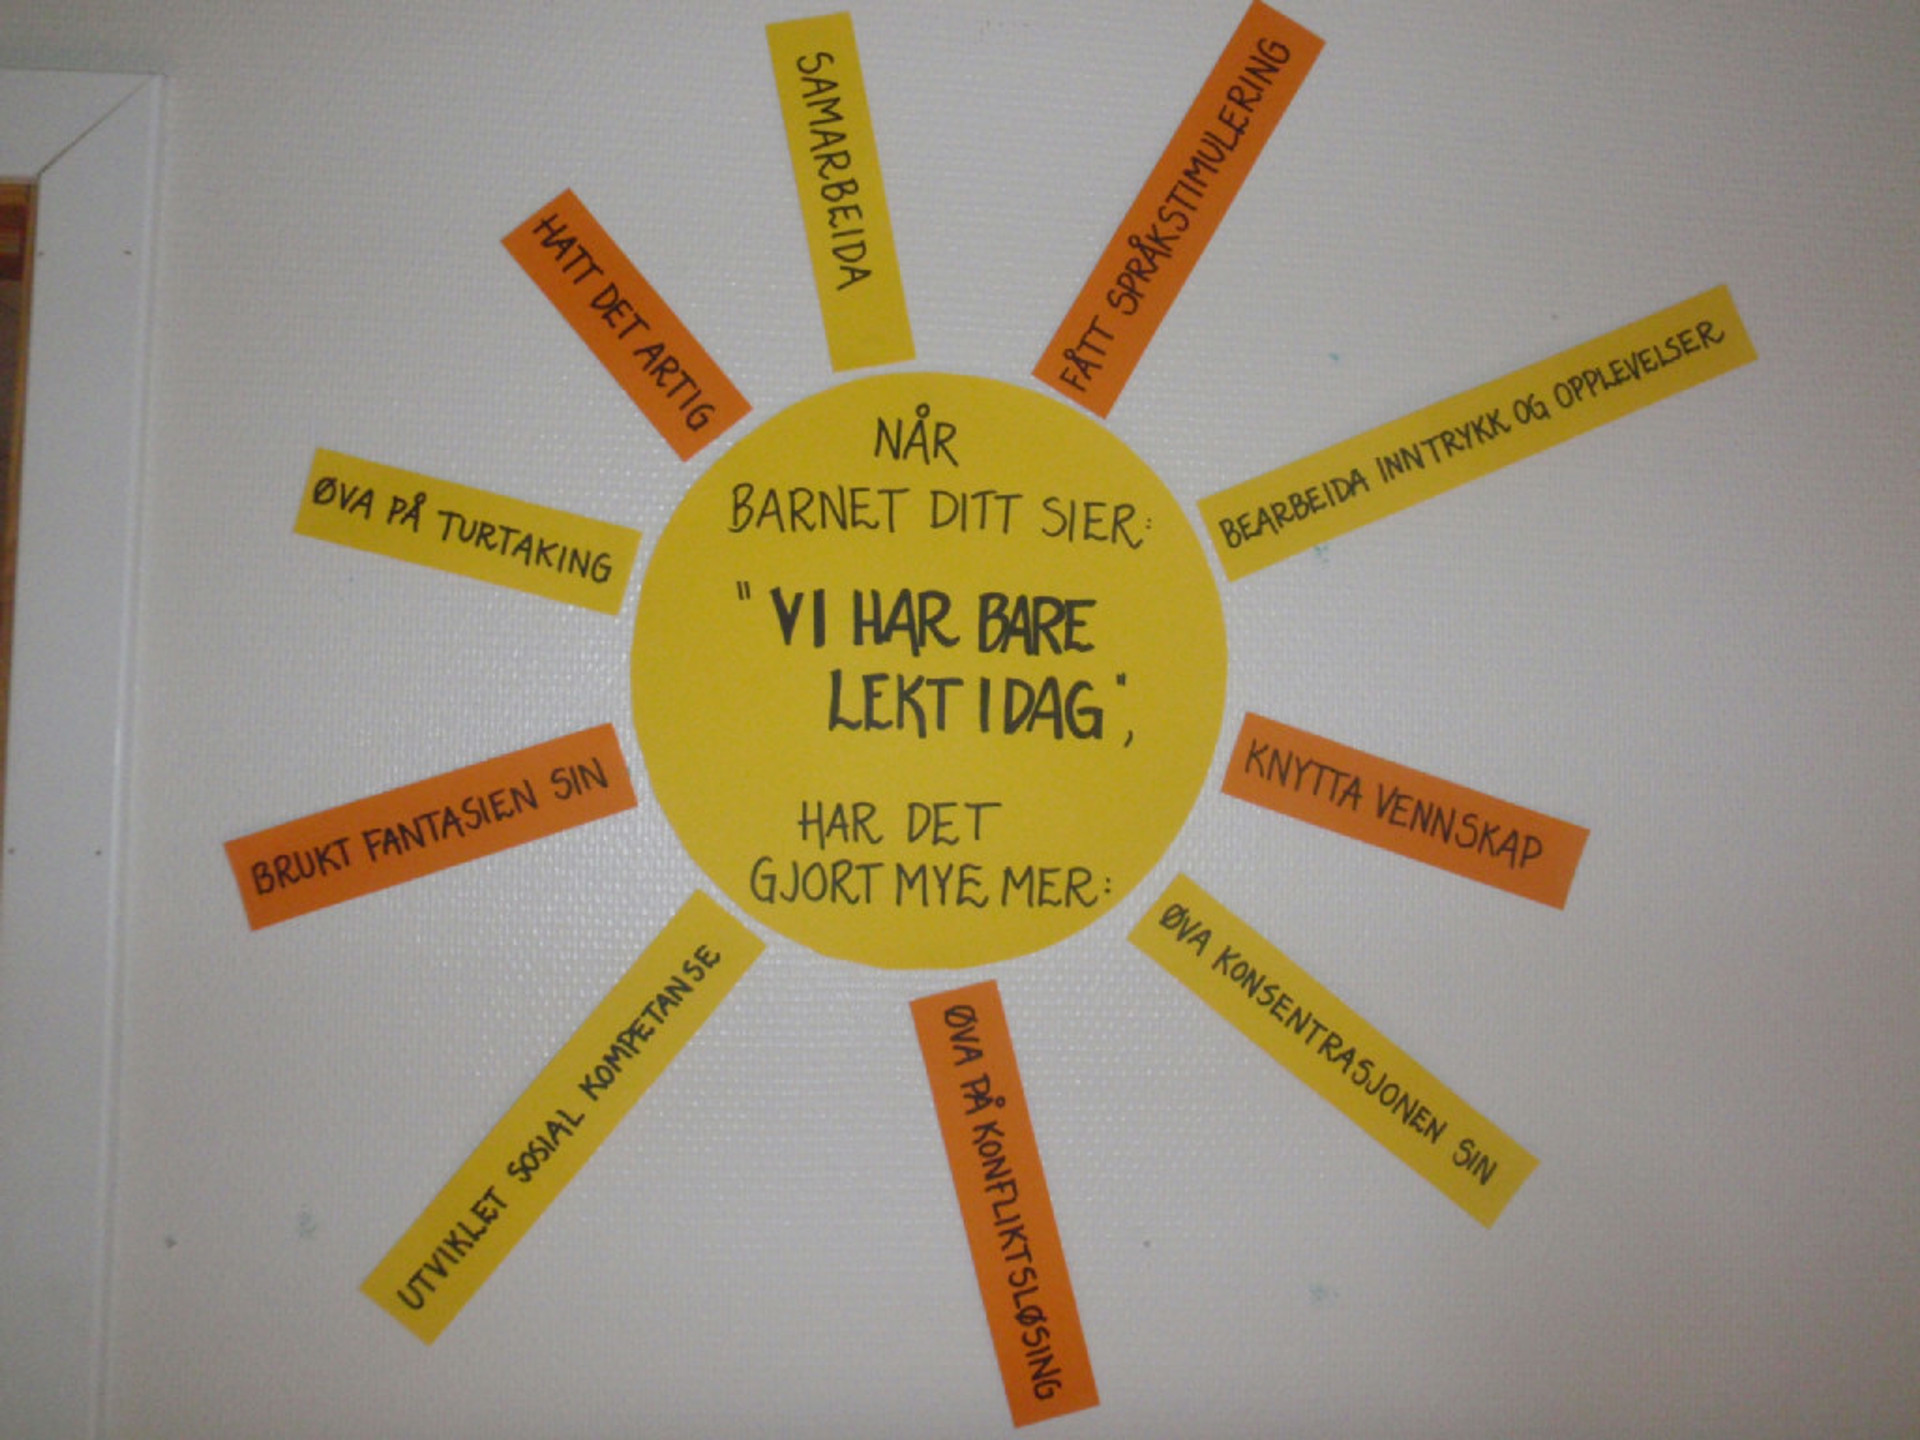 NÅR
BARNET DITT SIER:
"VI HAR BARE
LEKT I DAG",
HAR DET
GJORT MYE MER:
SAMARBEIDA
FÅTT SPRÅKSTIMULERING
BEARBEIDA INNTRYKK OG OPPLEVELSER
KNYTTA VENNSKAP
ØVA KONSENTRASJONEN SIN
ØVA PÅ KONFLIKTSLØSING
UTVIKLET SOSIAL KOMPETANSE
BRUKT FANTASIEN SIN
ØVA PÅ TURTAKING
HATT DET ARTIG